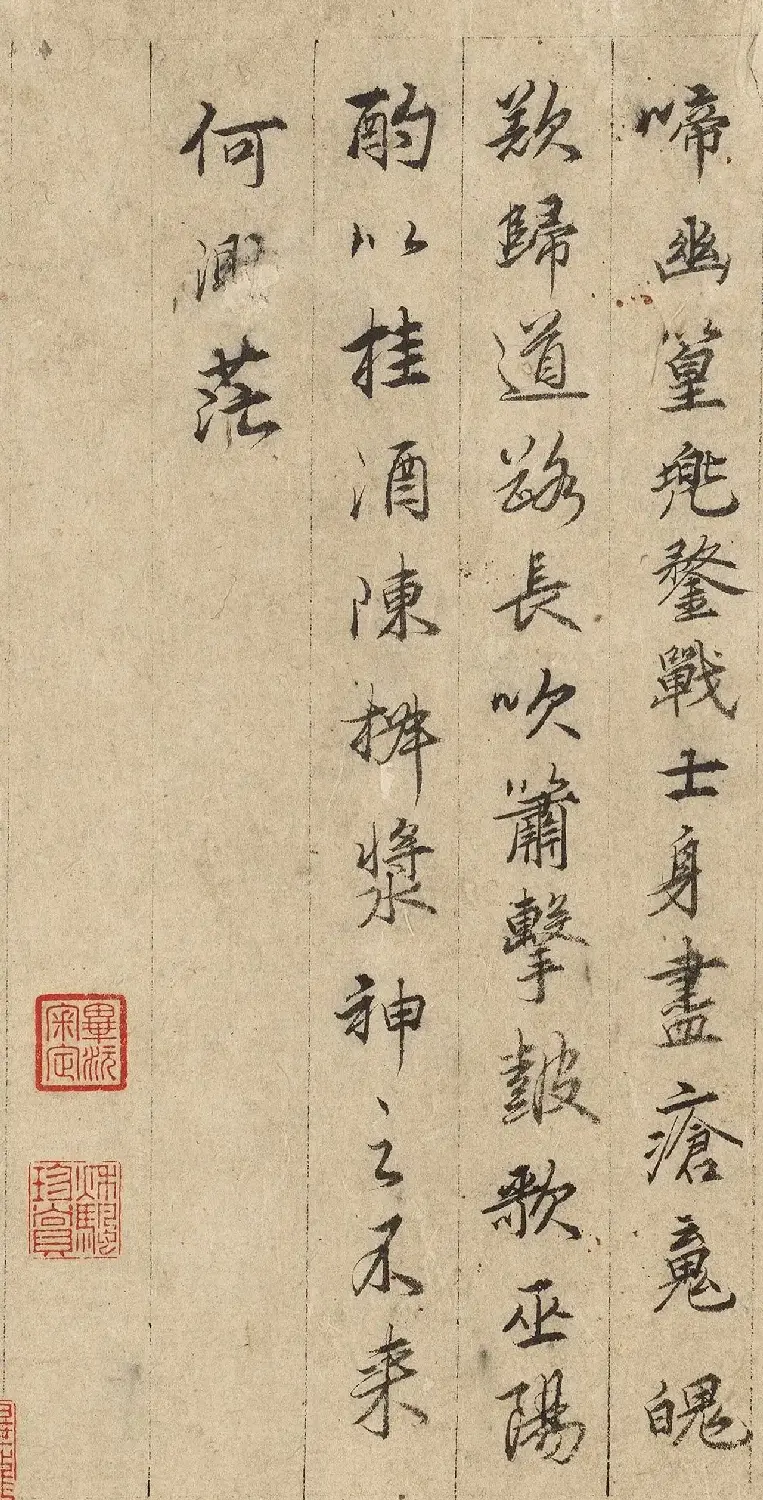 啼幽篁兜鍪戰士身盡瘡魂魄
欲歸道路長吹簫擊皷歌巫陽
酌以桂酒陳椒漿神之不来
何茫
畢沅宷定
秌颿珍賞